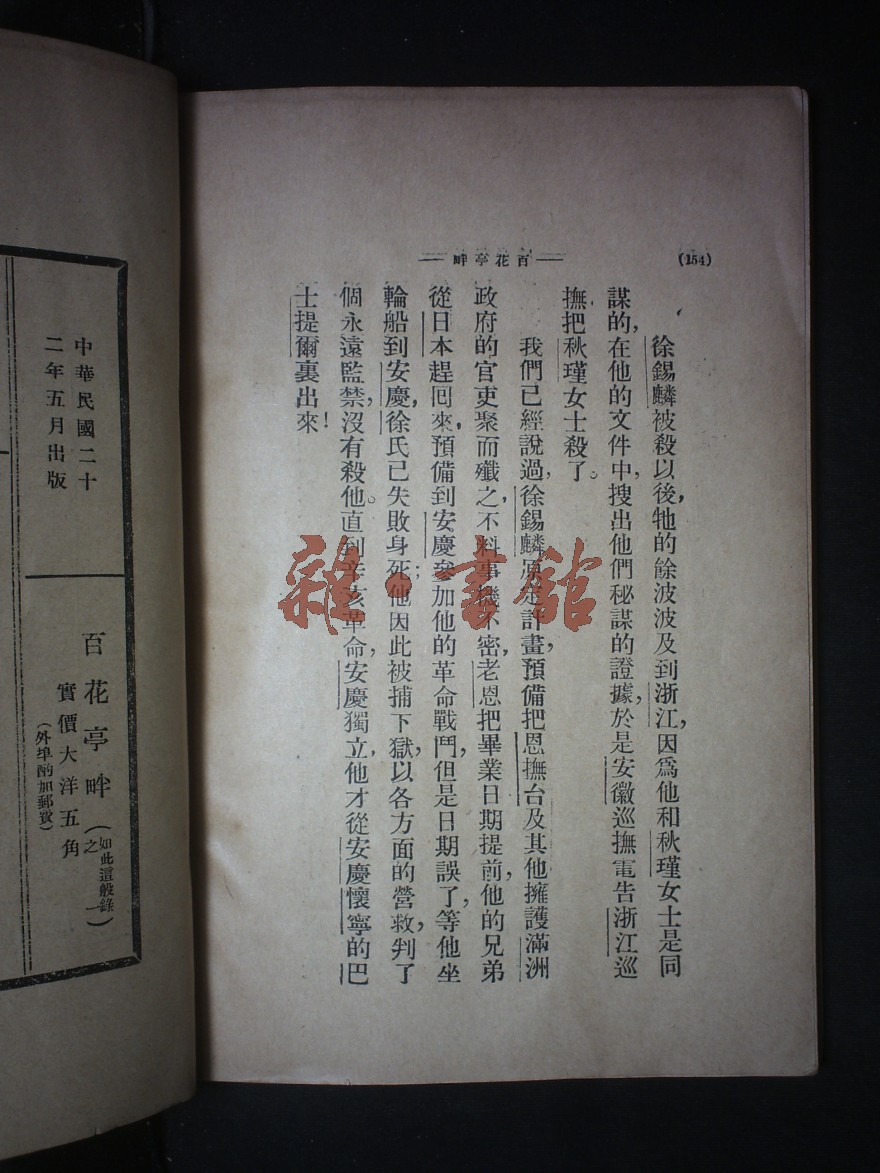 (154)
——百花亭畔——
徐錫麟被殺以後，牠的餘波波及到浙江，因爲他和秋瑾女士是同
謀的，在他的文件中，搜出他們秘謀的證據，於是安徽巡撫電告浙江巡
撫把秋瑾女士殺了。
我們已經說過，徐錫麟原定計畫，預備把恩撫台及其他擁護滿洲
政府的官吏聚而殲之，不料事機不密，老恩把畢業日期提前，他的兄弟
從日本趕回來，預備到安慶參加他的革命戰鬥，但是日期誤了，等他坐
輪船到安慶，徐氏已失敗身死；他因此被捕下獄，以各方面的營救，判了
個永遠監禁，沒有殺他。直到辛亥革命，安慶獨立，他才從安慶懷寧的巴
士提爾裏出來！
雜·書館
中華民國二十
二年五月出版
百花亭畔（如此這般錄之一）
實價大洋五角
（外埠酌加郵費）